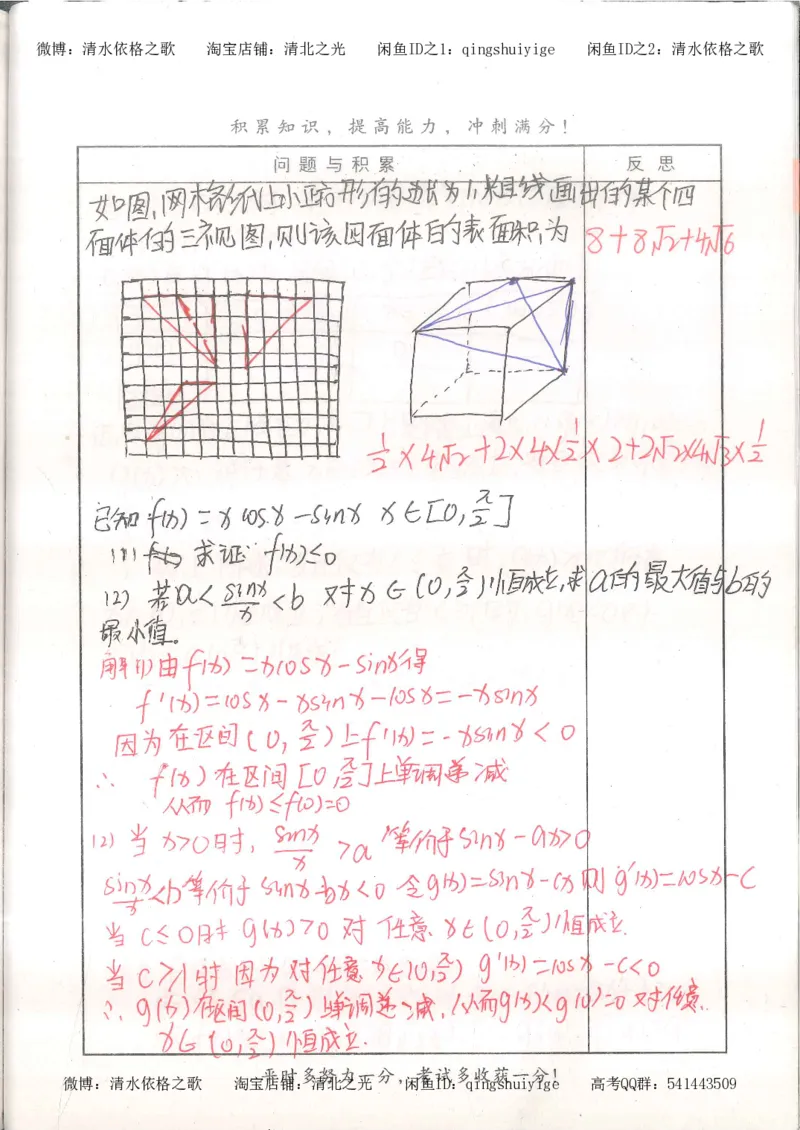 微博：清水依格之歌 淘宝店铺：清北之光 闲鱼ID之1：qingshuiyige 闲鱼ID之2：清水依格之歌
积累知识，提高能力，冲刺满分！
问题与积累 反思
如图,网格纸上小正方形的边长为1,粗线画出的某个四
面体的三视图,则该四面体的表面积为 8+8√2+4√6
1/2×4√2+2×4×1/2×2+2√2×4√3×1/2
已知f(x)=xcosx-sinx x∈[0,π/2]
(1) 求证: f(x)≤0
(2) 若a<sinx/x<b 对x∈(0,π/2)恒成立,求a的最大值与b的
最小值。
解(1)由f(x)=xcosx-sinx得
f'(x)=cosx-xsinx-cosx=-xsinx
因为在区间(0,π/2)上f'(x)=-xsinx<0
∴ f(x)在区间[0,π/2]上单调递减
从而f(x)≤f(0)=0
(2)当x>0时, sinx/x >a 等价于sinx-ax>0
sinx/x<b等价于sinx-bx<0 令g(x)=sinx-cx则g'(x)=cosx-c
当c≤0时 g(x)>0对任意x∈(0,π/2)恒成立.
当c≥1时 因为对任意x∈(0,π/2) g'(x)=cosx-c<0
∴g(x)在区间(0,π/2)上单调递减,从而g(x)<g(0)=0对任意
x∈(0,π/2)恒成立.
平时多努力一分，考试多收获一分！
微博：清水依格之歌 淘宝店铺：清北之光 闲鱼ID：qingshuiyige 高考QQ群：541443509